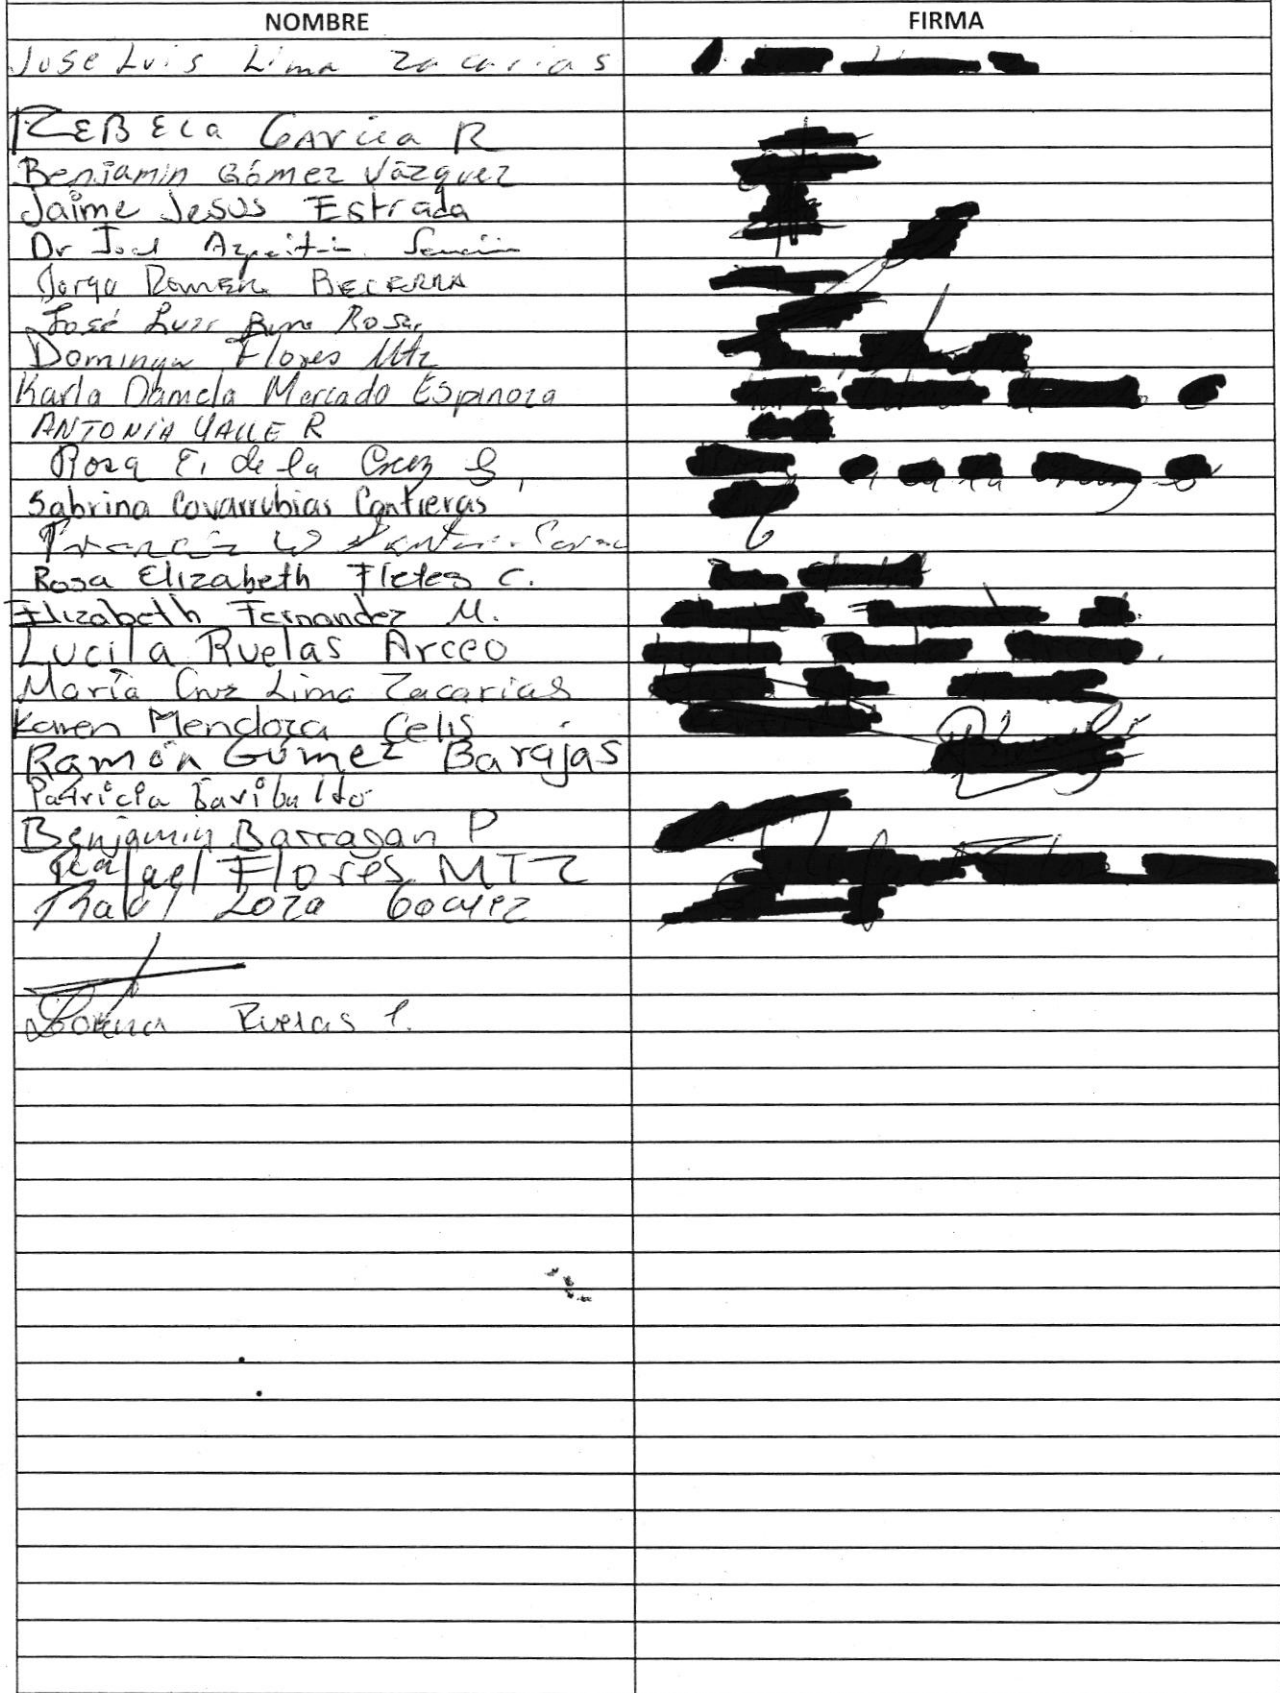 NOMBRE FIRMA
Jose Luis Lima Zacarias
REBELa GARCiia R
Benjamin Gómez Vázquez
Jaime Jesus Estrada
Dr
Jorge BECERRA
José Luis Rosa
Flores Mtz
Karla Daniela Mercado Espinoza
ANTONIA VALLE R
Rosa E. de la Cruz S
Sabrina Covarrubias Contreras
Rosa Elizabeth Fletes C.
Elizabeth Fernandez M.
Lucila Ruelas Arceo
María Cruz Lima Zacarias
Karen Mendoza Celis
Ramón Gómez Barajas
Patricia Garibaldo
Benjamin Barragan P
Rafael Flores MTZ
Loza Gomez
Lorena Ruelas P.